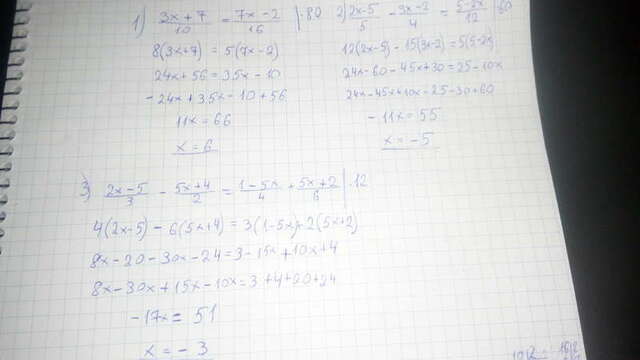 1) (3x+7)/10 = (7x-2)/16 |·80
8(3x+7) = 5(7x-2)
24x+56=35x-10
-24x+35x-10+56
11x=66
x=6
2) (2x-5)/5 - (3x-2)/4 = (5-2x)/12 |·60
12(2x-5)-15(3x-2)=5(5-2x)
24x-60-45x+30=25-10x
24x-45x+10x-25-30+60
-11x=55
x=-5
3) (2x-5)/3 - (5x+4)/2 = (1-5x)/4 + (5x+2)/6 |·12
4(2x-5)-6(5x+4)=3(1-5x)+2(5x+2)
8x-20-30x-24=3-15x+10x+4
8x-30x+15x-10x=3+4+20+24
-17x=51
x=-3